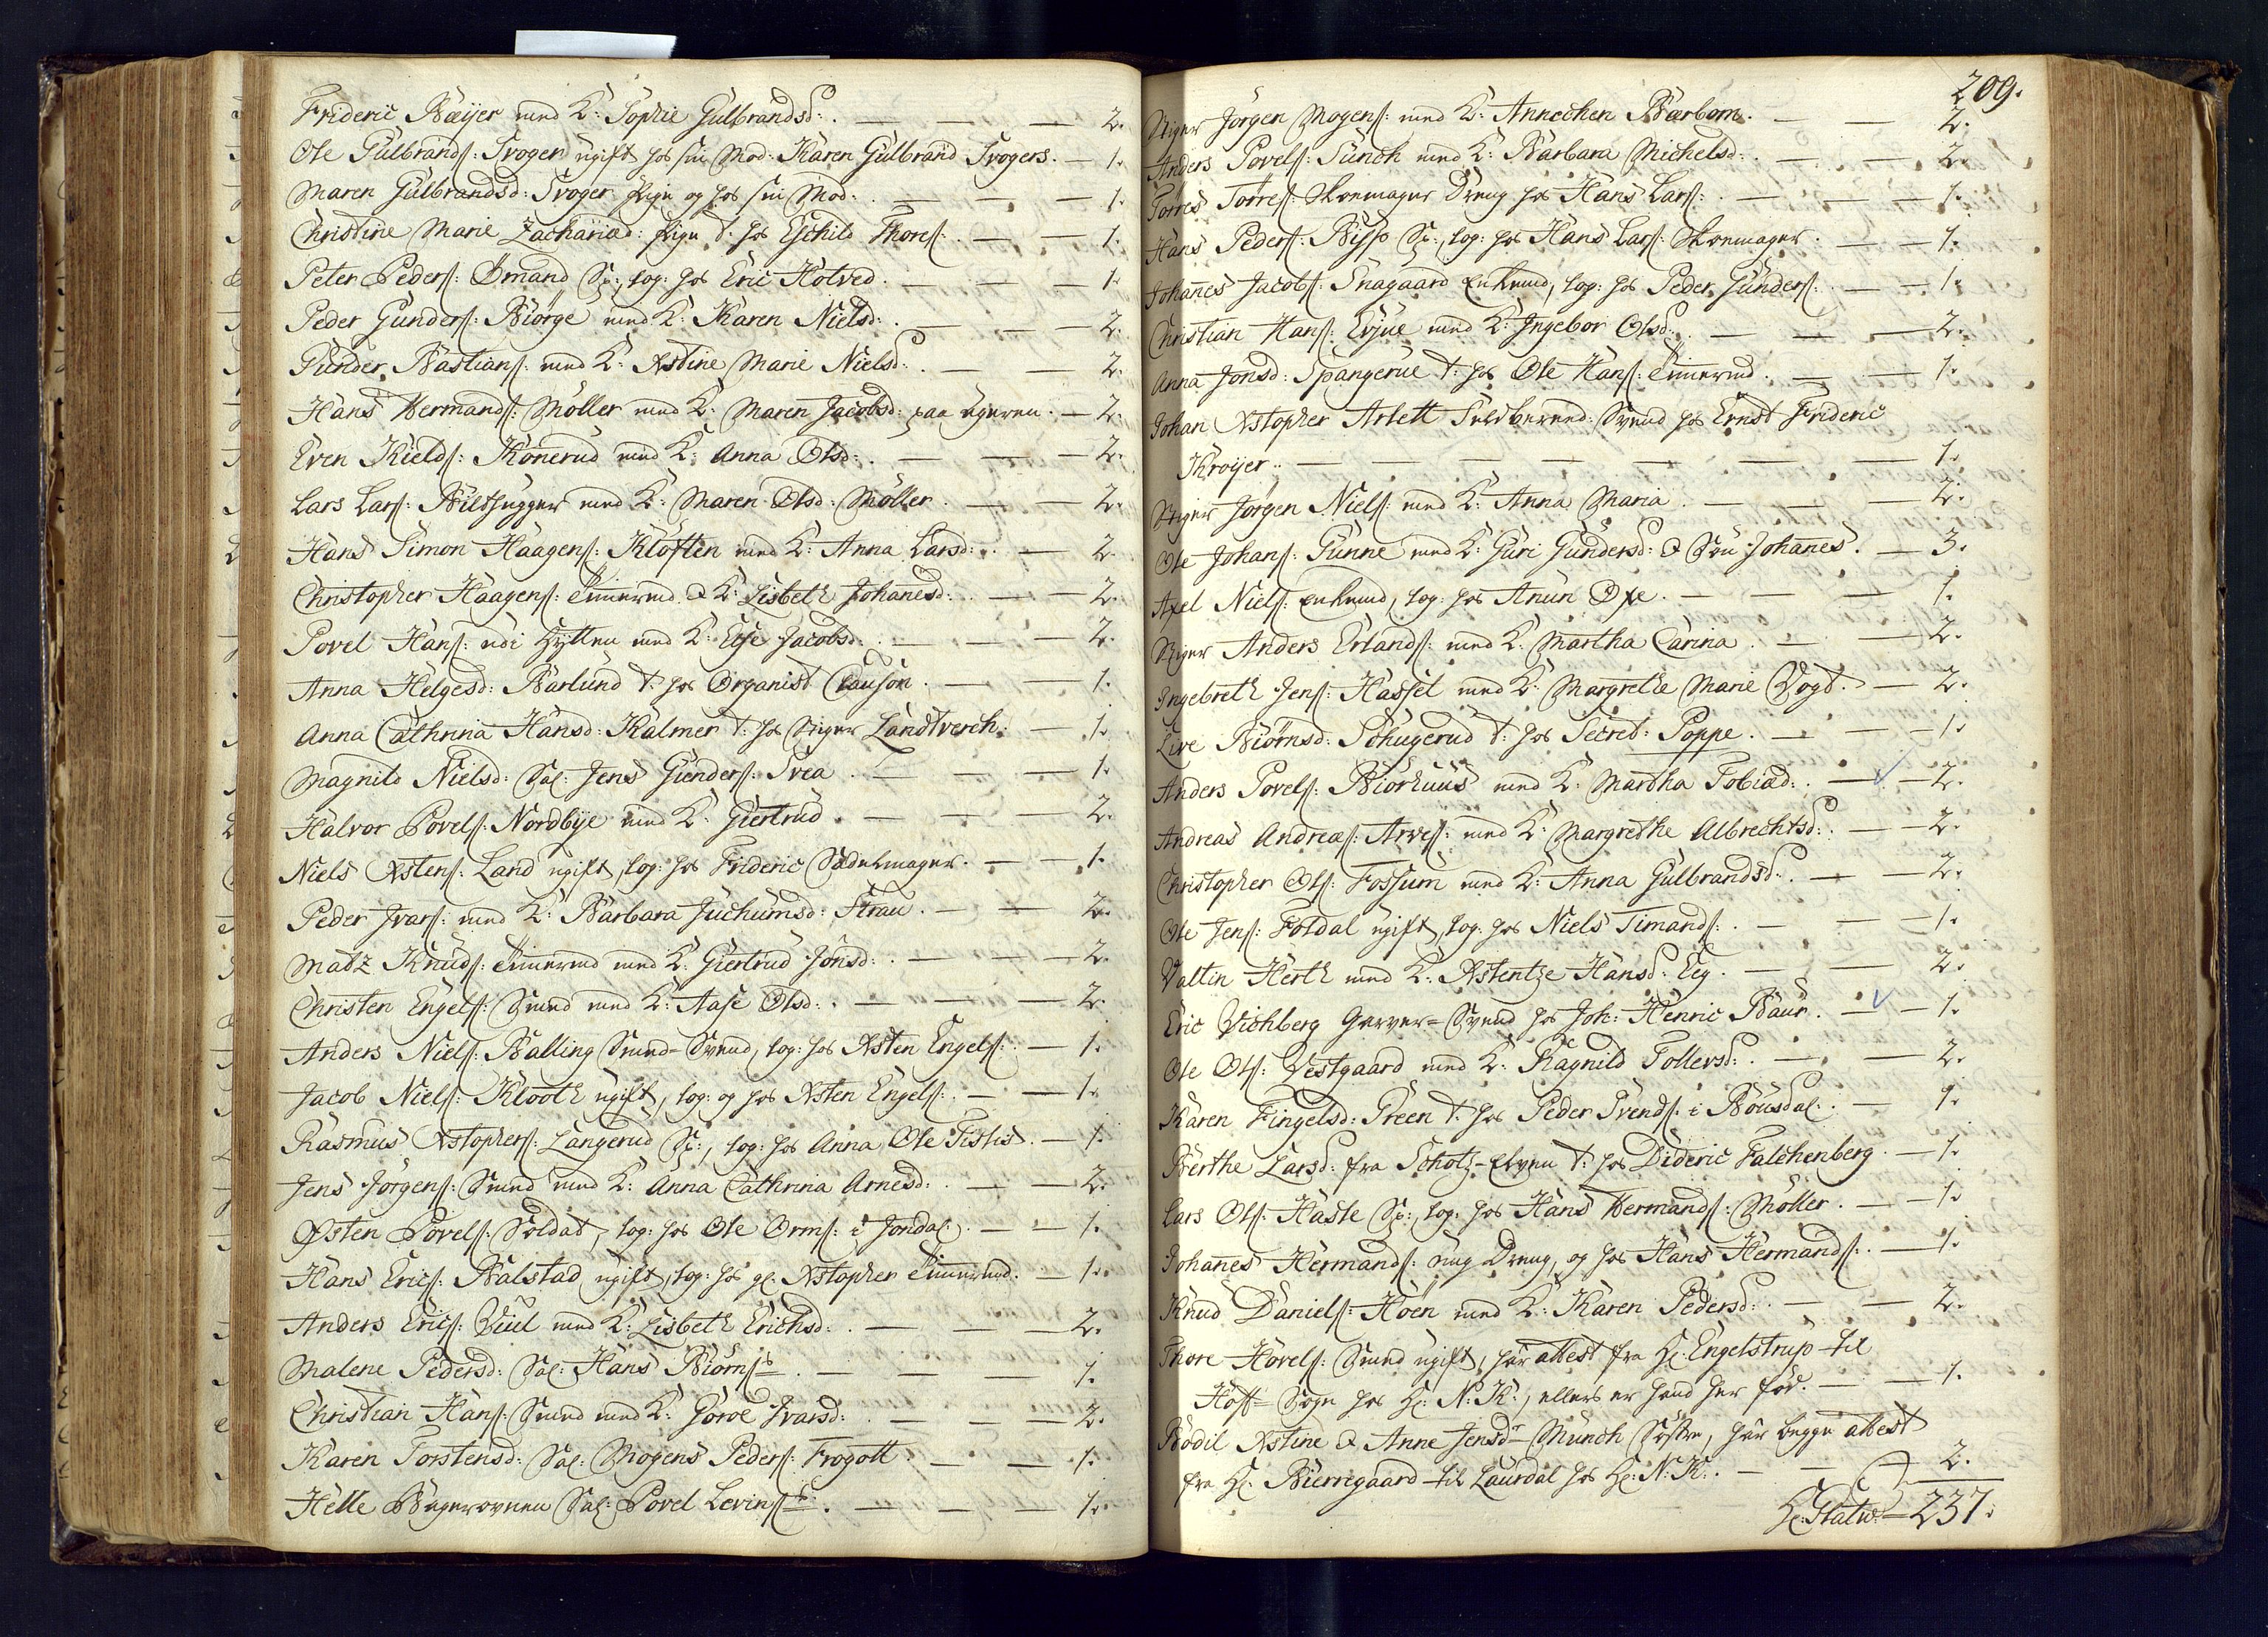 Frideric Bæyer med K: Sophie Gulbrandsd: . — — — 2.
Ole Gulbrands: Svoger ugift hos sin Mod: Karen Gulbrand Svogers. — 1.
Maren Gulbrandsd: Svoger Pige og hos sin Mod: . — — — 1.
Christine Marie Zachariæd: Pige t: hos Eschild Thores: . — — 1.
Peter Peders: Ømand Sp:, log: hos Eric Hotved . — — — 1.
Peder Gunders: Biørge med K: Karen Nielsd: . — — — 2.
Gunder Bastians: med K: Xstine Marie Nielsd: . — — 2.
Hans Hermands: Møller med K: Maren Jacobsd: paa Ageren. — 2.
Even Kields: Konerud med K: Anna Olsd: . — — — 2.
Lars Lars: Bilthugger med K: Maren Olsd: Møller . — — 2.
Hans Simon Haagens: Kløften med K: Anna Larsd: . — 2.
Christopher Haagens: Timermd & K: Lisbeth Johanesd: . — — 2.
Povel Hans: udi Hytten med K: Else Jacobsd: . — — — 2.
Anna Helgesd: Barlund t: hos Organist Clauson . — — 1.
Anna Cathrina Hansd: Kalmer t: hos Stiger Landtverch. — 1.
Magnild Nielsd: Sal: Jens Gunders: Svea . — — — 1.
Halvor Povels: Nordbye med K: Giertrud . — — — 2.
Niels Xstens: Land ugift, log: hos Frideric Sadelmager. — — 1.
Peder Ivars: med K: Barbara Juchumsd: Strau . — — 2.
Matz Knuds: Timermd med K: Giertrud Jonsd: . — — — 2.
Christen Engels: Smed med K: Aase Olsd: . — — — 2.
Anders Niels: Balling Smed-Svend, log: hos Xsten Engels: . — 1.
Jacob Niels: Klooth ugift, log: og hos Xsten Engels: . — — 1.
Rasmus Xstophers: Langerud Sp:, log: hos Anna Ole Fislis. — 1.
Jens Jørgens: Smed med K: Anna Cathrina Arnesd: . — — 2.
Østen Povels: Soldat, log: hos Ole Orms: i Jondal. — — 1.
Hans Erics: Balstad ugift, log: hos gl. Xstopher Timermd. — 1.
Anders Erics: Juul med K: Lisbeth Erichsd: . — — — 2.
Malene Pedersd: Sal: Hans Biørns: . — — — 1.
Christian Hans: Smed med K: Goroe Ivarsd: . — — — 2.
Karen Torstensd: Sal: Mogens Peders: Frogott . — — 1.
Helle Bagerovnen Sal: Povel Levins: . — — — 1.
209.
Stiger Jørgen Mogens: med K: Annechen Barbom. — — 2.
Anders Povels: Sunch med K: Barbara Michelsd: . — — 2.
Torres Torres: Skoemager Dreng hos Hans Lars: . — — — 1.
Hans Peders: Bisp Sp:, log: hos Hans Lars: Skoemager. — — 1.
Johanes Jacobs: Snagaard Enkemd, log: hos Peder Gunders: . — — 1.
Christian Hans: Evjue med K: Ingebor Olsd: . — — — 2.
Anna Jonsd: Spangerue t: hos Ole Hans: Timermd . — — 1.
Johan Xstopher Arlett Feldbered: Svend hos Ernst Frideric
Krøyer . — — — — — — 1.
Stiger Jørgen Niels: med K: Anna Maria . — — — 2.
Ole Johans: Gunne med K: Guri Gundersd: & Søn Johanes. — 3.
Axel Niels: Enkemd, log: hos Anun Oxe. — — — 1.
Stiger Anders Erlands: med K: Martha Carina . — — 2.
Ingebreth Jens: Hassel med K: Margrethe Marie Vogt. — 2.
Live Biørnsd: Schugerud t: hos Secret: Poppe. — — — 1.
Anders Povels: Biorhuus med K: Martha Tobiæd: . — — 2.
Andreas Andreæs: Arves: med K: Margrethe Albrechtsd: . — — 2.
Christopher Ols: Fossum med K: Anna Gulbrandsd: . — — 2.
Ole Jens: Foldal ugift, log: hos Niels Timands: . — — — 1.
Valtin Herth med K: Xstentze Hansd: Eeg . — — 2.
Eric Vichberg Garver-Svend hos Joh: Henric Baur. — — 1.
Ole Ols: Vestgaard med K: Ragnild Tollersd: . — — 2.
Karen Fingelsd: Green t: hos Peder Svends: i Bousdal. — 1.
Berthe Larsd: fra Schotz-Elven t: hos Dideric Falchenberg. — 1.
Lars Ols: Hasle Sp:, log: hos Hans Hermands: Møller . — — 1.
Johanes Hermands: ung Dreng, og hos Hans Hermands: . — 1.
Knud Daniels: Hoen med K: Karen Pedersd: . — — 2.
Thore Hovels: Smed ugift, har attest fra Hr: Engelstrup til
Hoff-Sogn hos Hr: N: K:, ellers er hand her fød. — — 1.
Bodil Xstine & Anne Jensdr Munch Søstre, har begge attest
fra Hr: Bierregaard til Laurdal hos Hr: N: K: . — — 2.
237.